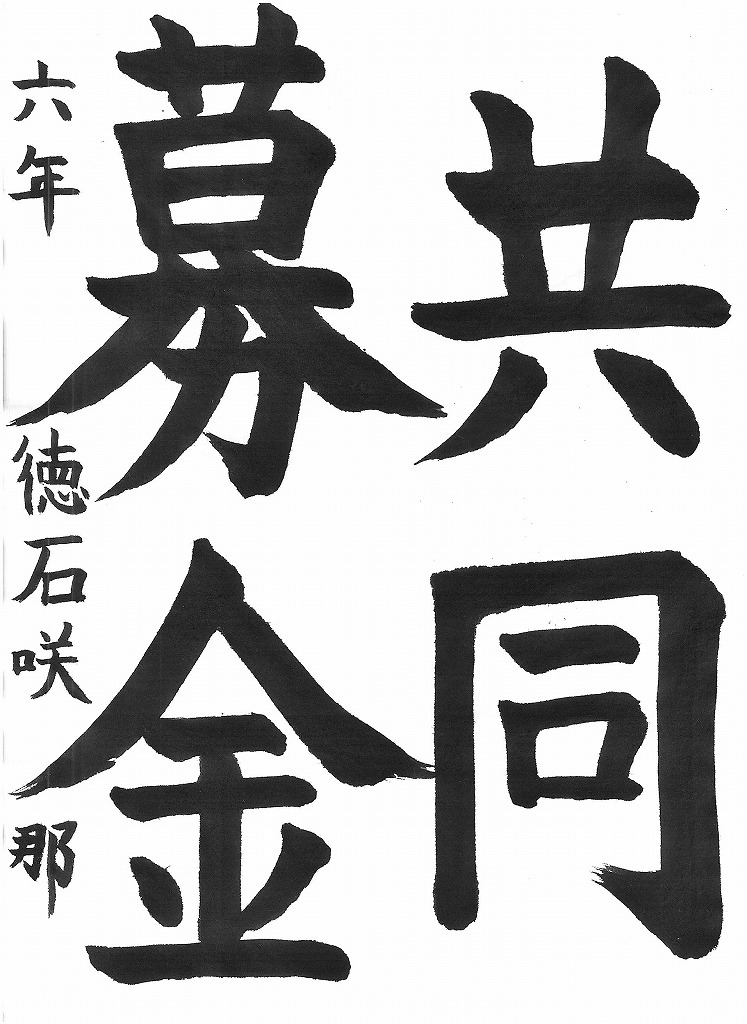 共同
募金
六年 徳石咲那